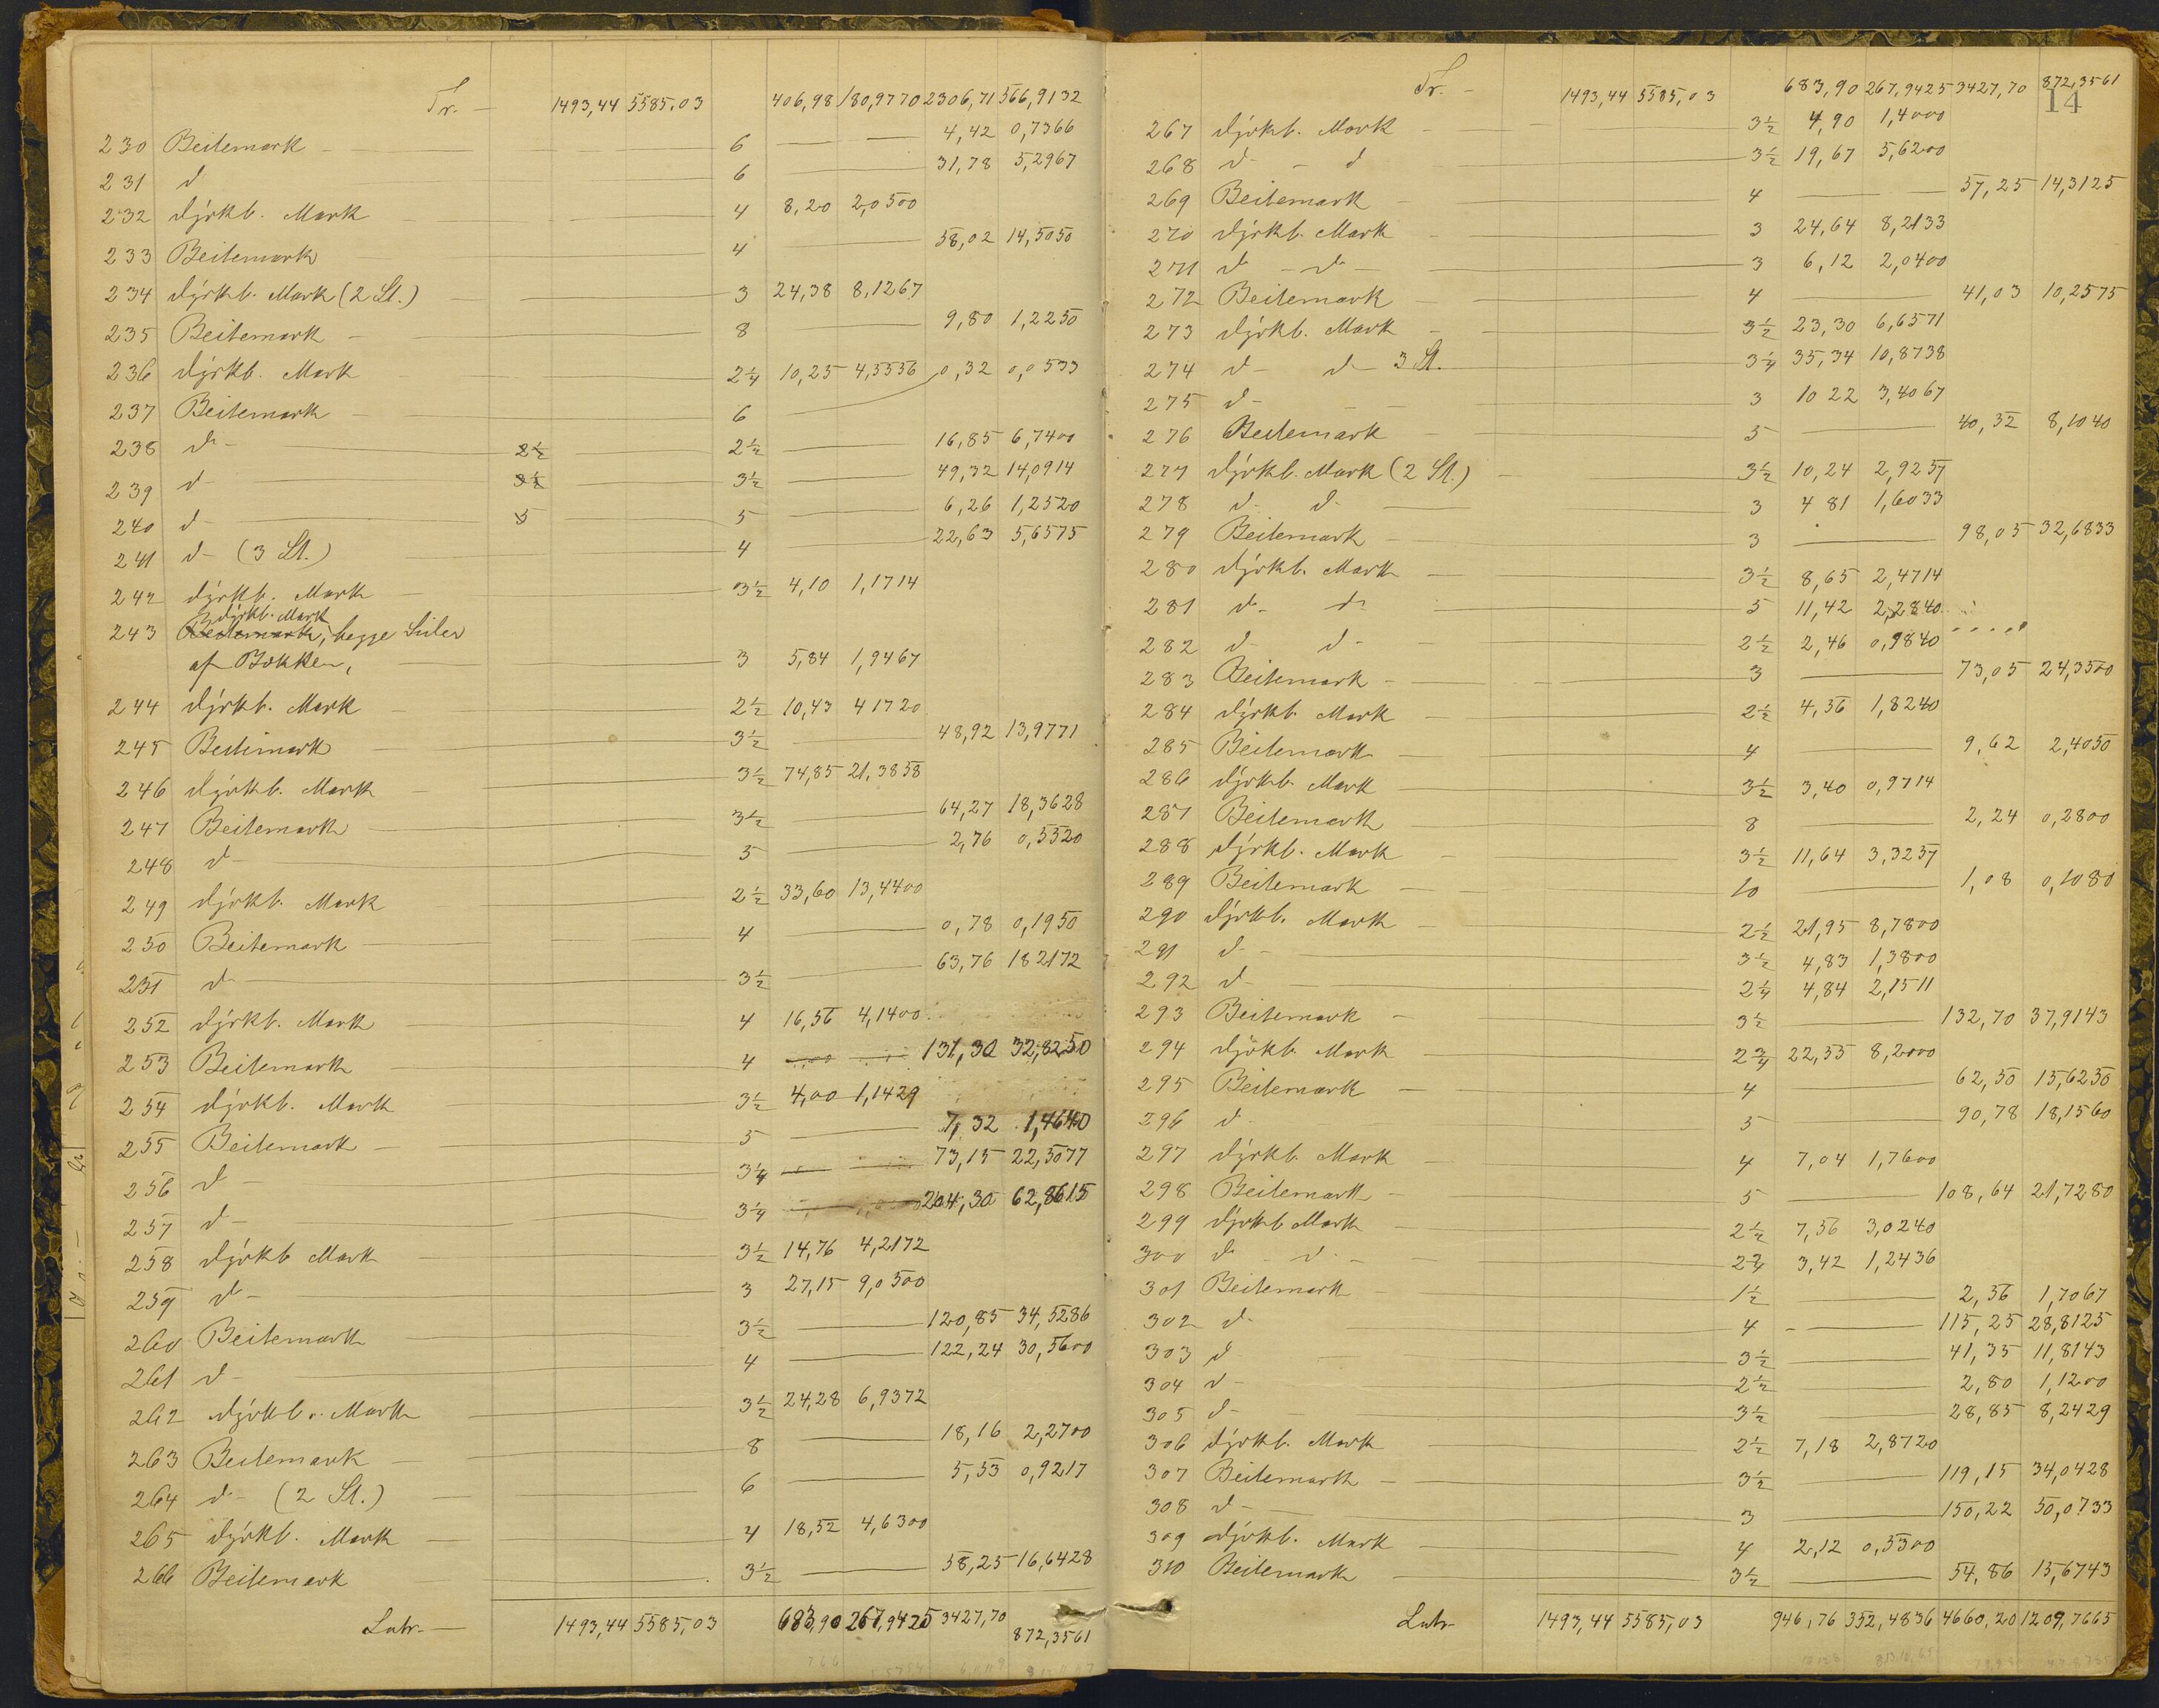 Tr. — 1493,44 5585,03 406,98 180,9770 2306,71 566,9132
230 Beitemark — 6 — 4,42 0,7366
231 d — 6 — 31,78 5,2967
232 dyrkb. Mark — 4 8,20 2,0500
233 Beitemark — 4 — 58,02 14,5050
234 dyrkb. Mark (2 St.) — 3 24,38 8,1267
235 Beitemark — 8 — 9,80 1,2250
236 dyrkb. Mark — 2¼ 10,25 4,5556 0,32 0,0533
237 Beitemark — 6 —
238 d — 2½ 2½ — 16,85 6,7400
239 d — 3½ 3½ — 49,32 14,0914
240 d — 5 5 — 6,26 1,2520
241 d — (3 St.) 4 — 22,63 5,6575
242 dyrkb. Mark — 3½ 4,10 1,1714
dyrkb. Mark
243 Beitemark, begge Sider
af Bækken, — 3 5,84 1,9467
244 dyrkb. Mark — 2½ 10,43 4 1720
245 Beitemark — 3½ — 48,92 13,9771
246 dyrkb. Mark — 3½ 74,85 21,3858
247 Beitemark — 3½ — 64,27 18,3628
248 d — 5 — 2,76 0,5520
249 dyrkb. Mark — 2½ 33,60 13,4400
250 Beitemark — 4 — 0,78 0,1950
251 d — 3½ — 63,76 18 2172
252 dyrkb. Mark — 4 16,56 4,1400
253 Beitemark — 4 — 131,30 32,8250
254 dyrkb. Mark — 3½ 4,00 1,1429
255 Beitemark — 5 — 7,32 1,4640
256 d — 3¼ — 73,15 22,5077
257 d — 3¼ — 204,30 62,8615
258 dyrkb Mark — 3½ 14,76 4,2172
259 d — 3 27,15 9,0500
260 Beitemark — 3½ — 120,85 34,5286
261 d — 4 — 122,24 30,5600
262 dyrkb. Mark — 3½ 24,28 6,9372
263 Beitemark — 8 — 18,16 2,2700
264 d — (2 St.) — 6 — 5,53 0,9217
265 dyrkb. Mark — 4 18,52 4,6300
266 Beitemark 3½ — 58,25 16,6428
Latr. — 1493,44 5585,03 683,90 267,9425 3427,70 872,3561
14
Tr. — 1493,44 5585,03 683,90 267,9425 3427,70 872,3561
267 dyrkb. Mark — 3½ 4,90 1,4000
268 d — d — 3½ 19,67 5,6200
269 Beitemark — 4 — 57,25 14,3125
270 dyrkb. Mark — 3 24,64 8,2133
271 d — d — 3 6,12 2,0400
272 Beitemark — 4 — 41,03 10,2575
273 dyrkb. Mark — 3½ 23,30 6,6571
274 d — d — 3 St. — 3¼ 35,34 10,8738
275 d — 3 10 22 3,4067
276 Beitemark — 5 — 40,52 8,1040
277 dyrkb. Mark (2 St.) — 3½ 10,24 2,9257
278 d d — 3 4 81 1,6033
279 Beitemark — 3 — 98,05 32,6833
280 dyrkb. Mark — 3½ 8,65 2,4714
281 d — d — 5 11,42 2,2840
282 d d — 2½ 2,46 0,9840
283 Beitemark — 3 — 73,05 24,3500
284 dyrkb. Mark — 2½ 4,56 1,8240
285 Beitemark — 4 — 9,62 2,4050
286 dyrkb. Mark — 3½ 3,40 0,9714
287 Beitemark — 8 — 2,24 0,2800
288 dyrkb. Mark — 3½ 11,64 3,3257
289 Beitemark — 10 — 1,08 0,1080
290 dyrkb. Mark — 2½ 21,95 8,7800
291 d — 3½ 4,83 1,3800
292 d — 2¼ 4,84 2,1511
293 Beitemark — 3½ — 132,70 37,9143
294 dyrkb. Mark — 2¾ 22,55 8,2000
295 Beitemark — 4 — 62,50 15,6250
296 d — 5 — 90,78 18,1560
297 dyrkb. Mark — 4 7,04 1,7600
298 Beitemark — 5 — 108,64 21,7280
299 dyrkb Mark — 2½ 7,56 3,0240
300 d — d — 2¾ 3,42 1,2436
301 Beitemark — 1½ — 2,56 1,7067
302 d — 4 — 115,25 28,8125
303 d — 3½ — 41,35 11,8143
304 d — 2½ — 2,80 1,1200
305 d — 3½ — 28,85 8,2429
306 dyrkb. Mark — 2½ 7,18 2,8720
307 Beitemark — 3½ — 119,15 34,0428
308 d — 3 — 150,22 50,0733
309 dyrkb. Mark — 4 2,12 0,5300
310 Beitemark — 3½ — 54,86 15,6743
Latr. 1493,44 5585,03 946,76 352,4836 4660,20 1209,7665